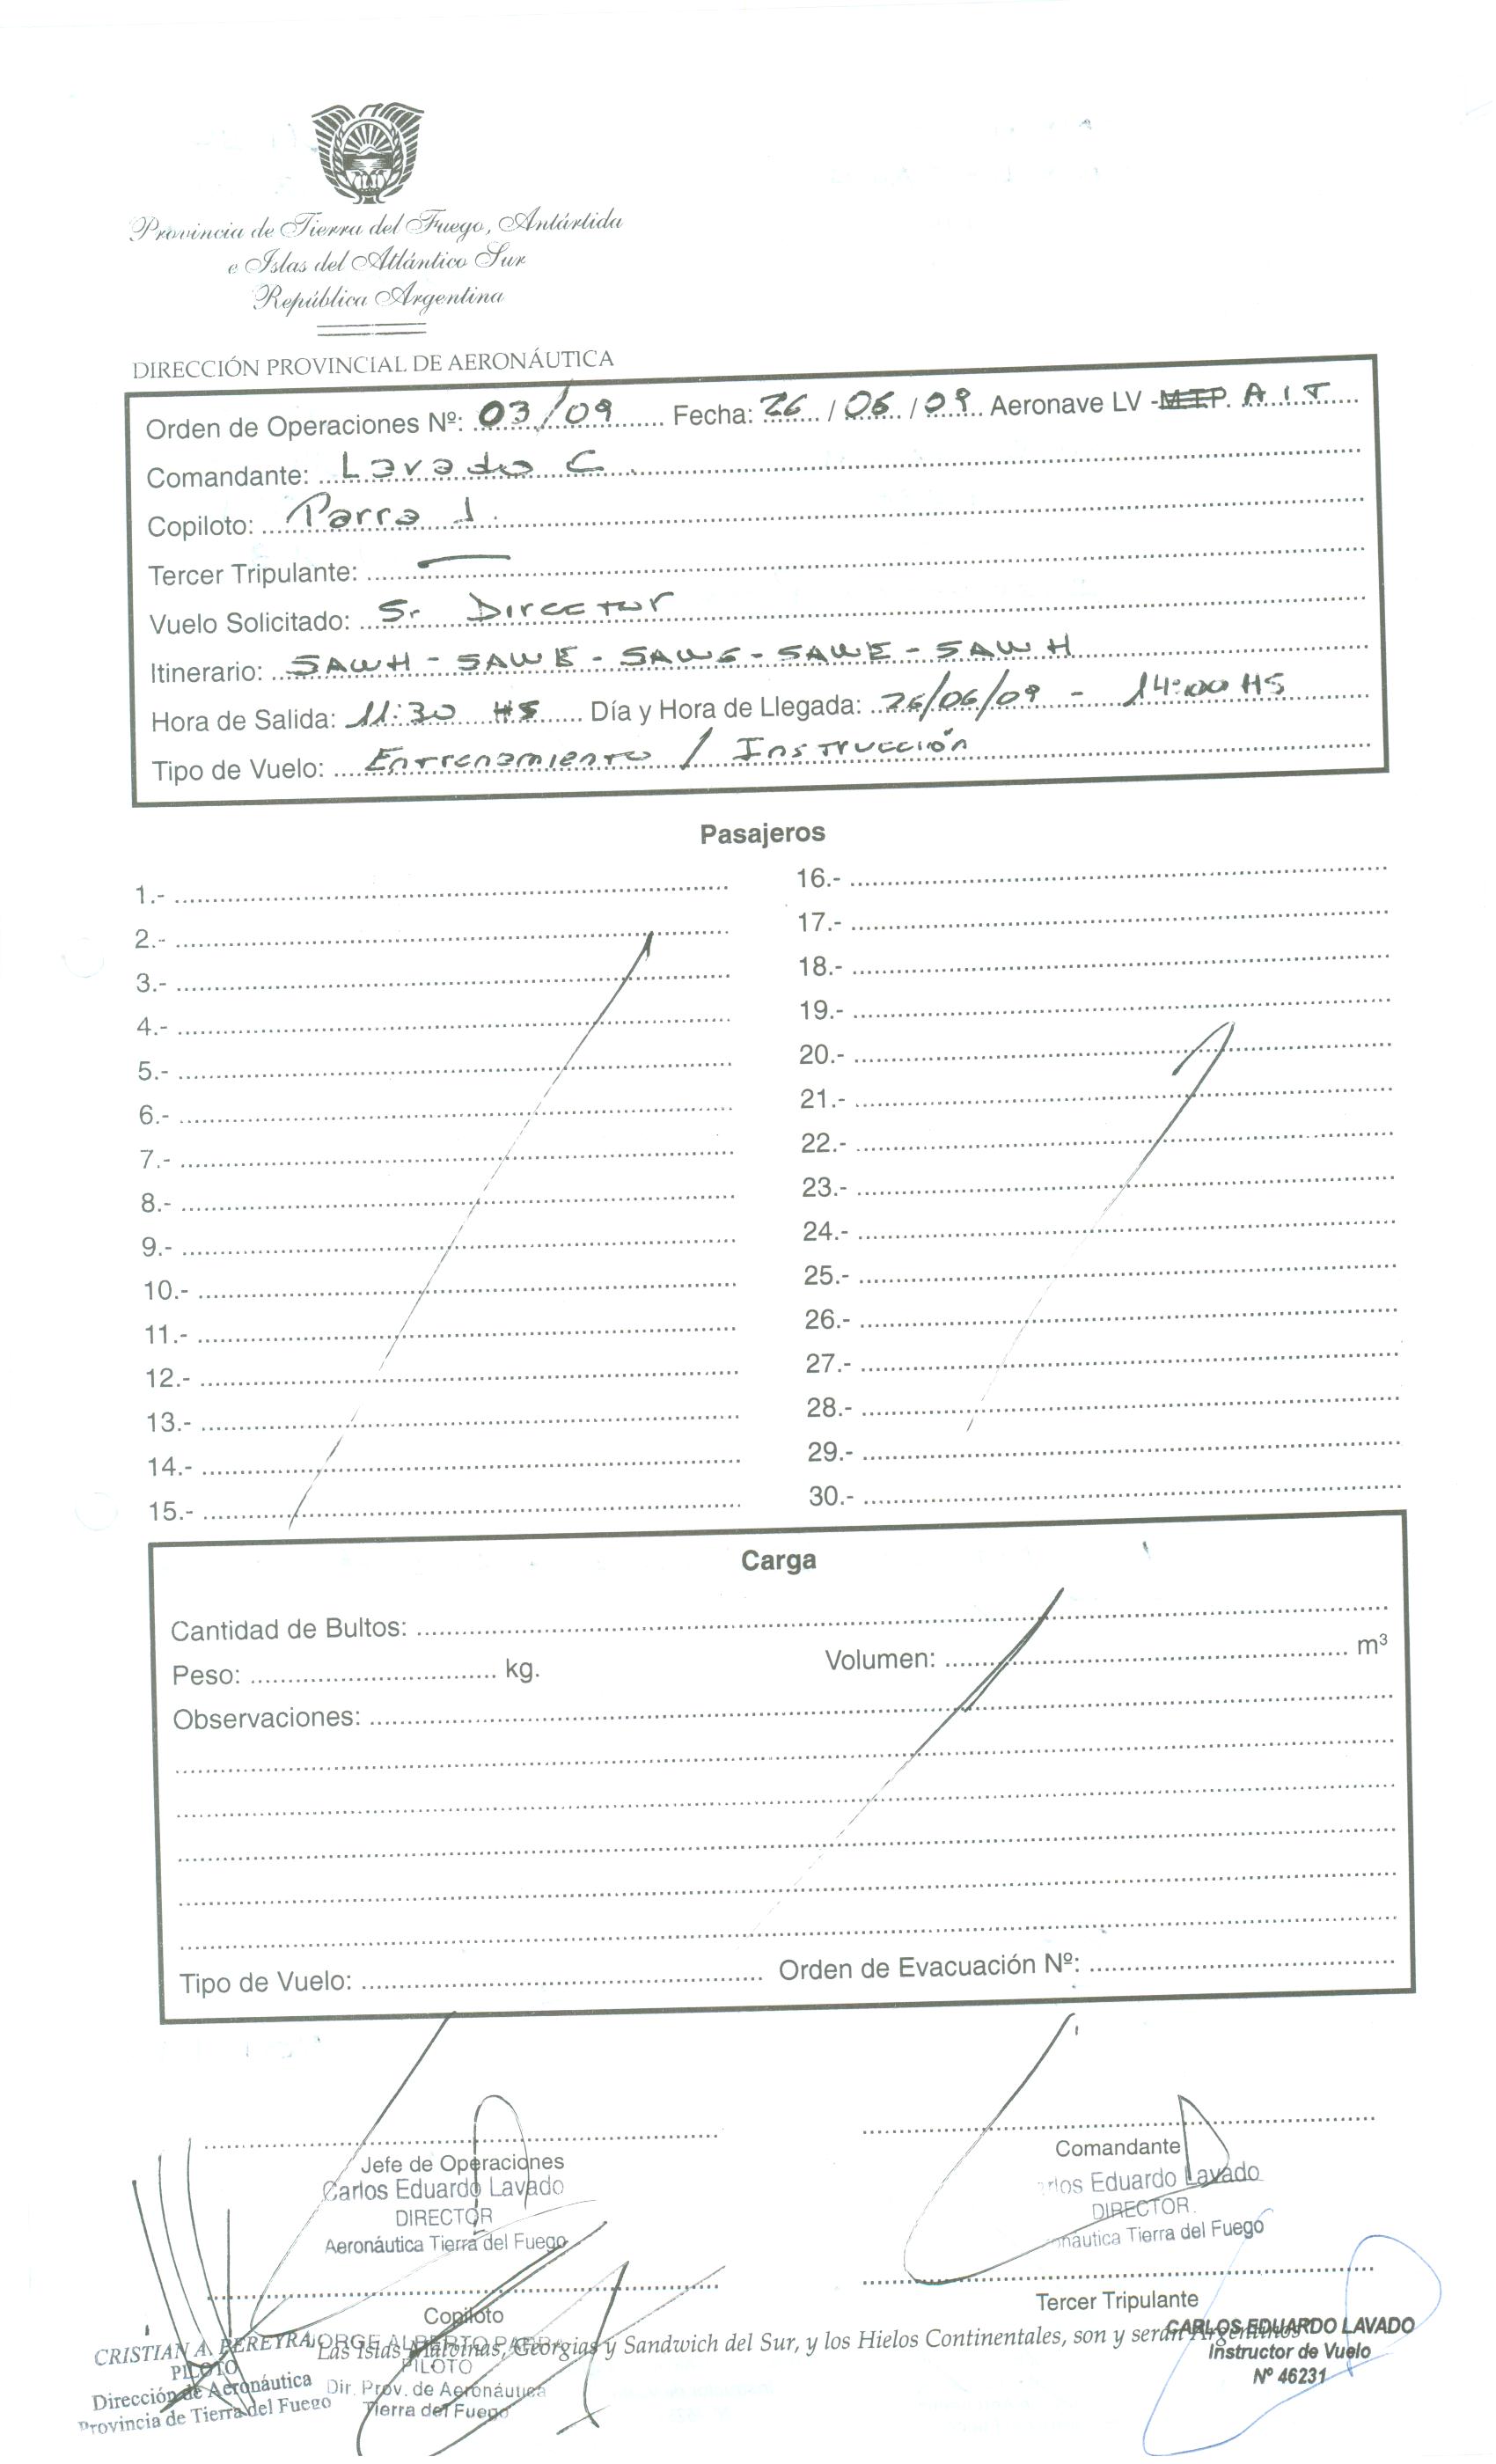 Provincia de Tierra del Fuego, Antártida
e Islas del Atlántico Sur
República Argentina
DIRECCIÓN PROVINCIAL DE AERONÁUTICA
Orden de Operaciones Nº: 03/09 Fecha: 26 / 06 / 09 Aeronave LV - A I T
Comandante: Lavado C.
Copiloto: Parra J.
Tercer Tripulante:
Vuelo Solicitado: Sr Director
Itinerario: SAWH - SAWE - SAWG - SAWE - SAWH
Hora de Salida: 11:30 HS Día y Hora de Llegada: 26/06/09 - 14:00 HS
Tipo de Vuelo: Entrenamiento / Instrucción
Pasajeros
1.-
2.-
3.-
4.-
5.-
6.-
7.-
8.-
9.-
10.-
11.-
12.-
13.-
14.-
15.-
16.-
17.-
18.-
19.-
20.-
21.-
22.-
23.-
24.-
25.-
26.-
27.-
28.-
29.-
30.-
Carga
Cantidad de Bultos:
Peso: kg. Volumen: m³
Observaciones:
Tipo de Vuelo: Orden de Evacuación Nº:
Jefe de Operaciones
Carlos Eduardo Lavado
DIRECTOR
Aeronáutica Tierra del Fuego
Comandante
rlos Eduardo Lavado
DIRECTOR
náutica Tierra del Fuego
Copiloto
Tercer Tripulante
CRISTIAN A. PEREYRA
PILOTO
Dirección de Aeronáutica
Provincia de Tierra del Fuego
JORGE ALBERTO PARRA
PILOTO
Dir. Prov. de Aeronáutica
Tierra del Fuego
Las Islas Malvinas, Georgias y Sandwich del Sur, y los Hielos Continentales, son y serán Argentinos
CARLOS EDUARDO LAVADO
Instructor de Vuelo
Nº 46231